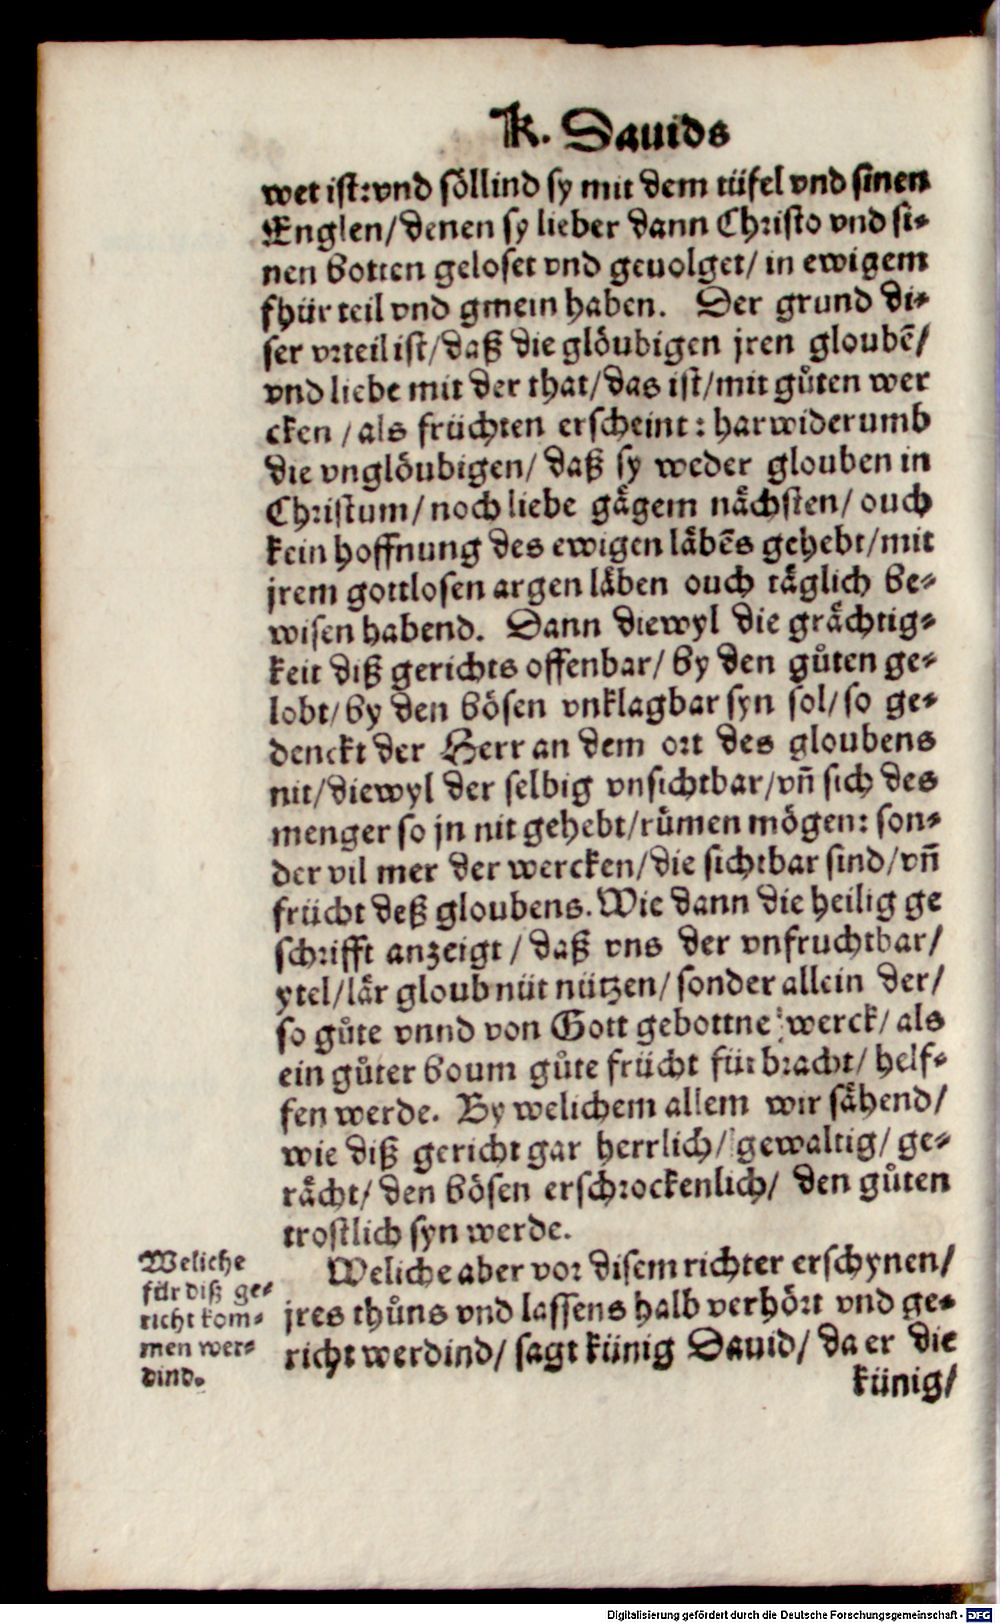 K. Dauids
wet ist: vnd söllind sy mit dem tüfel vnd sinen
Englen/ denen sy lieber dann Christo vnd si-
nen botten geloset vnd geuolget/ in ewigem
fhür teil vnd gmein haben. Der grund di-
ser vrteil ist/ daß die glöubigen jren gloubē/
vnd liebe mit der that/ das ist/ mit gůten wer
cken / als früchten erscheint: harwiderumb
die vnglöubigen/ daß sy weder glouben in
Christum/ noch liebe gägem nächsten/ ouch
kein hoffnung des ewigen läbēs gehebt/ mit
jrem gottlosen argen läben ouch täglich be-
wisen habend. Dann diewyl die grächtig-
keit diß gerichts offenbar/ by den gůten ge-
lobt/ by den bösen vnklagbar syn sol/ so ge-
denckt der Herr an dem ort des gloubens
nit/ diewyl der selbig vnsichtbar/ vñ sich des
menger so jn nit gehebt/ růmen mögen: son-
der vil mer der wercken/ die sichtbar sind/ vñ
frücht deß gloubens. Wie dann die heilig ge
schrifft anzeigt / daß vns der vnfruchtbar/
ytel/ lär gloub nüt nützen/ sonder allein der/
so gůte vnnd von Gott gebottne werck/ als
ein gůter boum gůte frücht für bracht/ helf-
fen werde. By welichem allem wir sähend/
wie diß gericht gar herrlich/ gewaltig/ ge-
rächt/ den bösen erschrockenlich/ den gůten
trostlich syn werde.
Weliche
für diß ge-
richt kom-
men wer-
dind.
Weliche aber vor disem richter erschynen/
jres thůns vnd lassens halb verhört vnd ge-
richt werdind/ sagt künig Dauid/ da er die
künig/
Digitalisierung gefördert durch die Deutsche Forschungsgemeinschaft - DFG